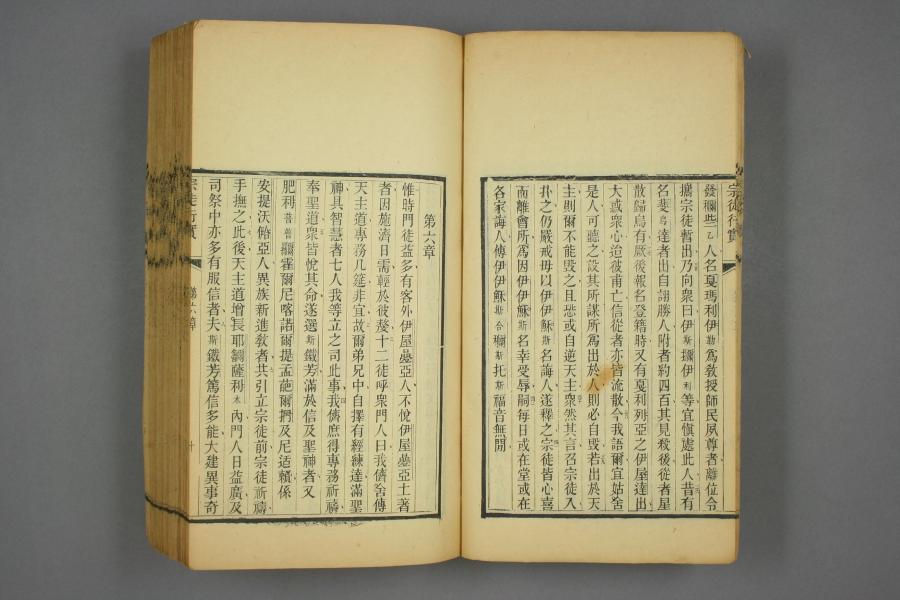 宗徒行實
發穪些乙人名戛瑪利伊勒爲敎授師民夙尊者離位令
攜宗徒暫出乃向衆曰伊斯攦伊利等宜愼處此人昔有
名斐烏達者出自詡勝人附者約四百其見殺後從者星
散歸烏有厥後報名登籍時又有戛利列亞之伊屋達出
大惑衆心迨彼甫亡信從者亦皆流散今我語爾宜姑舍
是人可聽之設其所謀所爲出於人則必自毁若出於天
主則爾不能毁之且恐或自逆天主衆然其言召宗徒入
扑之仍嚴戒毋以伊伊穌斯名誨人遂釋之宗徒皆心喜
而離會所爲因伊伊穌斯名幸受辱嗣每日或在堂或在
各家誨人傳伊伊穌斯合穪斯托斯福音無間
第六章
惟時門徒益多有客外伊屋疊亞人不悅伊屋疊亞土著
者因施濟日需輕於彼嫠十二徒呼衆門人曰我儕舍傳
天主道專務几筵非宜故爾弟兄中自擇有經練達滿聖
神具智慧者七人我等立之司此事我儕庶得專務祈禱
奉聖道衆皆悅其命遂選斯鐵芳滿於信及聖神者又
肥利普普攦霍爾尼喀諾爾提孟葩爾捫及尼适賴係
安提沃儕亞人異族新進敎者共引立宗徒前宗徒祈禱
手撫之此後天主道增長耶龥薩利木內門人日益廣及
司祭中亦多有服信者夫斯鐵芳篤信多能大建異事奇
宗徒行實
第六章
十